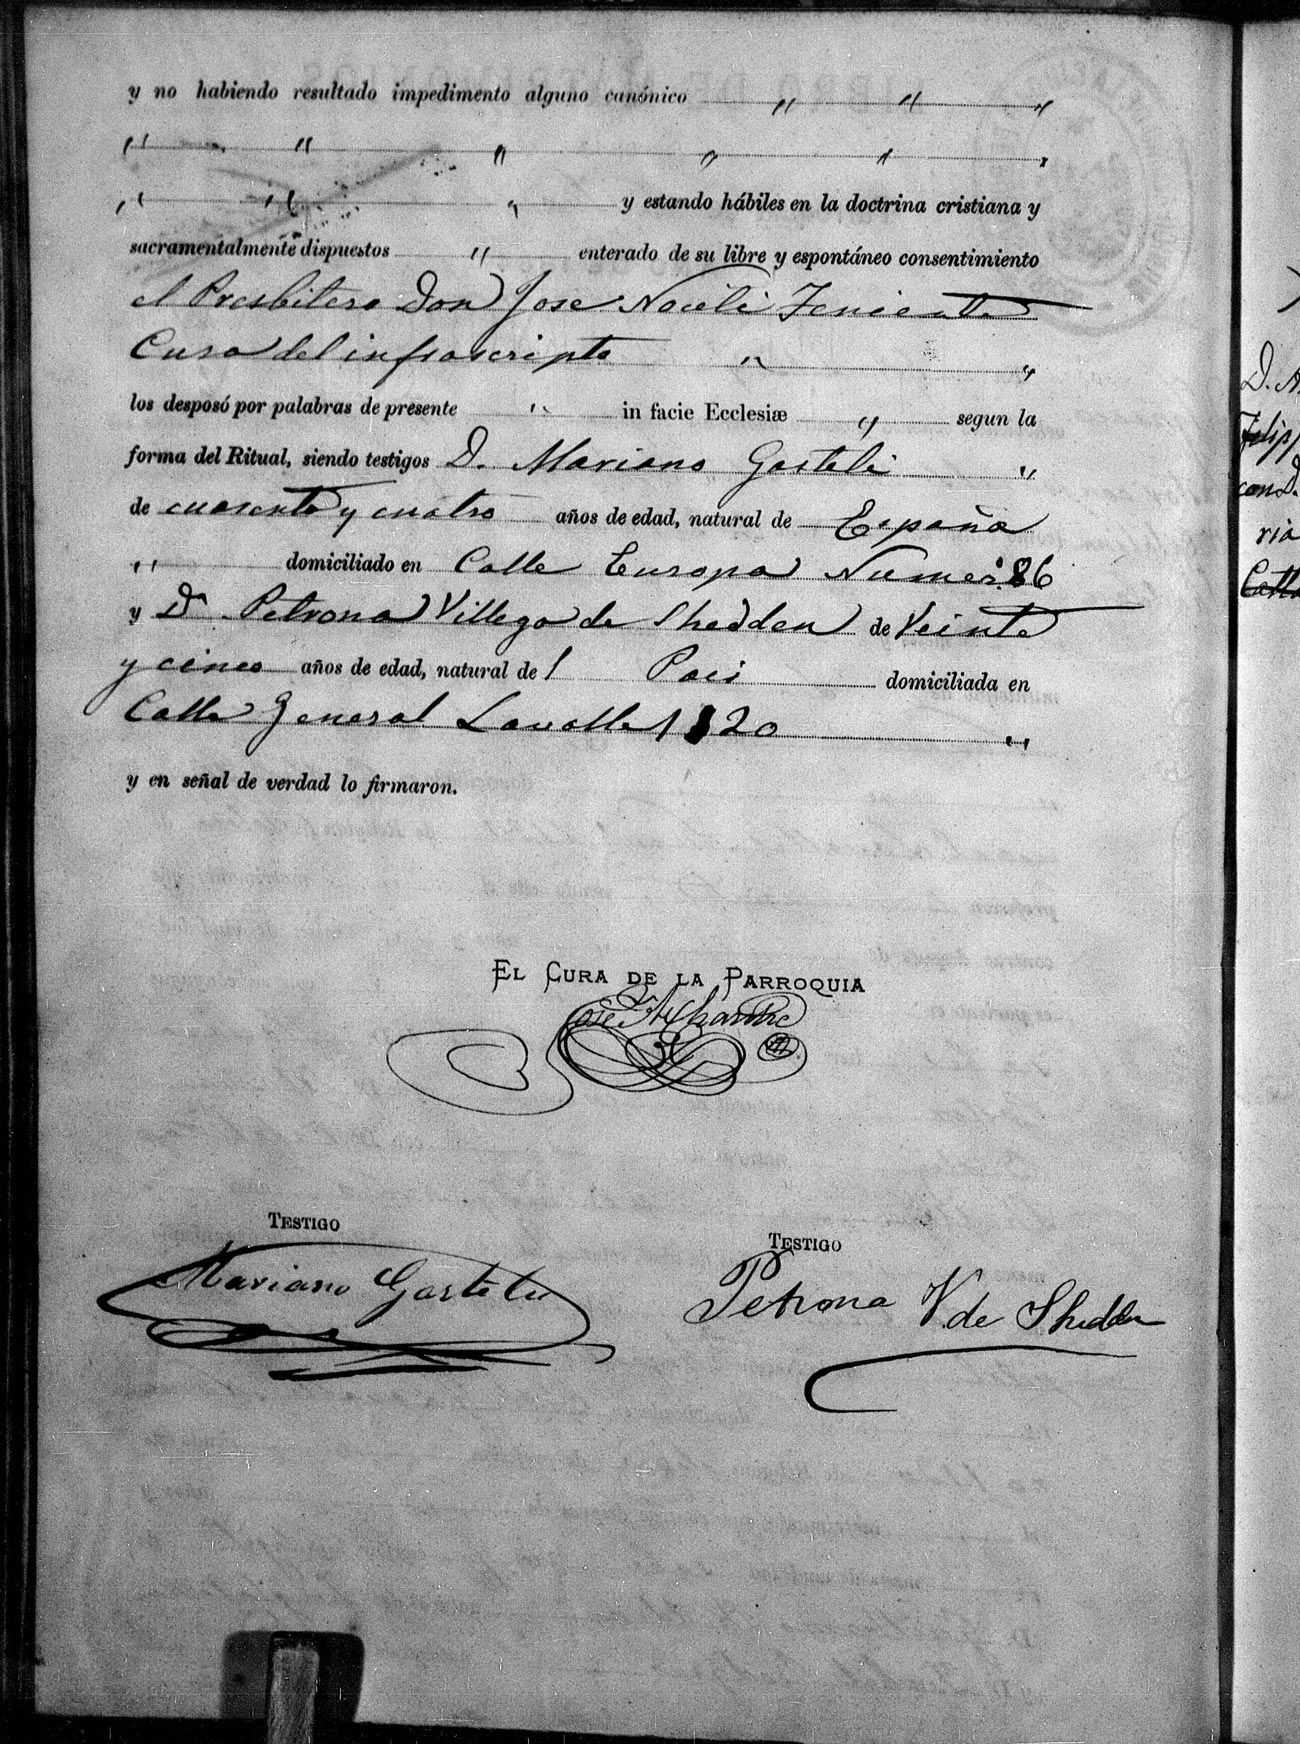 y no habiendo resultado impedimento alguno canónico " " "
" " " " " "
" " " y estando hábiles en la doctrina cristiana y
sacramentalmente dispuestos " enterado de su libre y espontáneo consentimiento
el Presbitero Don Jose Teniente
Cura del infrascripto " "
los desposó por palabras de presente " in facie Ecclesiæ " segun la
forma del Ritual, siendo testigos D. Mariano Gastelú "
de cuarenta y cuatro años de edad, natural de España
" domiciliado en Calle Europa Numero 86
y Da Petrona Villega de Shedden de Veinte
y cinco años de edad, natural del Pais domiciliada en
Calle General Lavalle 1820 "
y en señal de verdad lo firmaron.
EL CURA DE LA PARROQUIA
José
TESTIGO
TESTIGO
Mariano Gastelu
Petrona V. de Shedden
D.
con D.